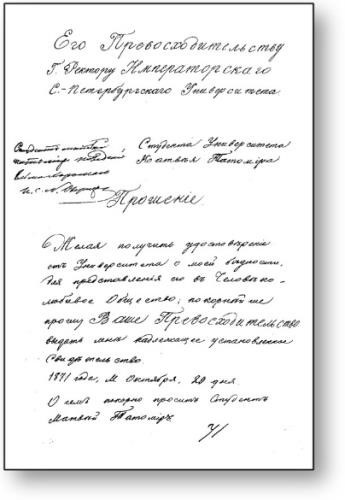 Его Превосходительству
Г. Ректору Императорскаго
С.-Петербургскаго Университета
Студента Университета
Матвея Татомира
Прошенiе.
Желая получить удостоверенiе
отъ Университета о моей бедности,
для представленiя его въ Человеко-
любивое Общество, покорнейше
прошу Ваше Превосходительство
выдать мне надлежащее установленное
Свидетельство.
1871 года, М. Октября, 20 дня.
О семъ покорно проситъ Студентъ
Матвей Татомиръ